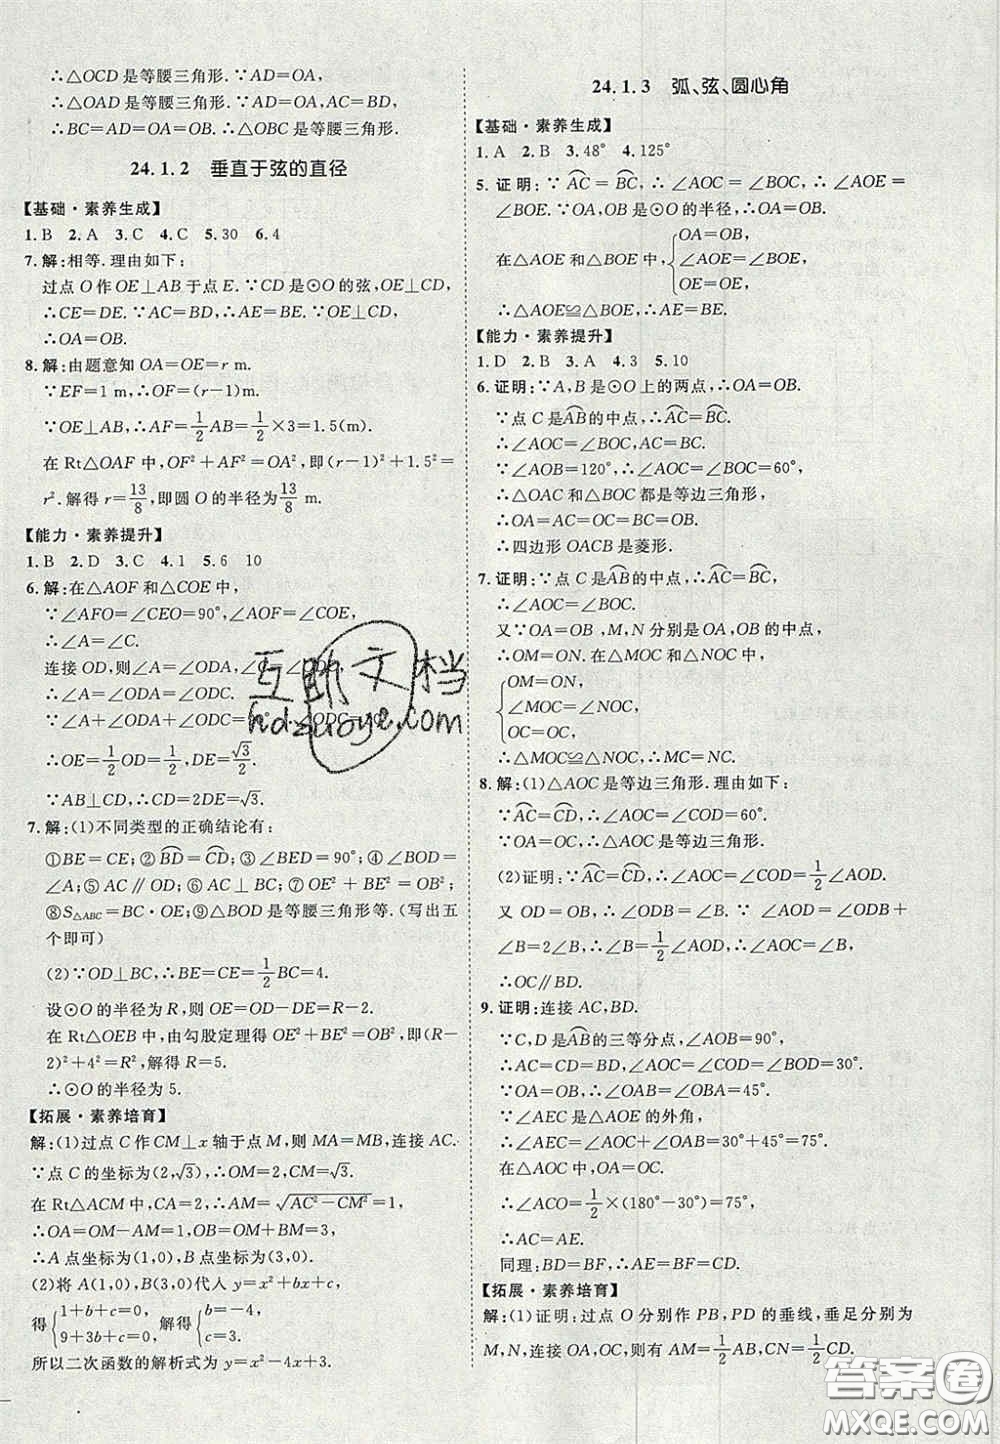 ∴△OCD 是等腰三角形.∵AD=OA,
∴△OAD 是等腰三角形.∵AD=OA,AC=BD,
∴BC=AD=OA.∴△OBC 是等腰三角形.
24.1.2 垂直于弦的直径
【基础·素养生成】
1.B 2.A 3.C 4.C 5.30 6.4
7.解:相等.理由如下:
过点 O 作 OE⊥AB 于点 E.∵CD 是⊙O 的弦,
∴CE=DE.∵AC=BD,∴AE=BE.∵OE⊥AB,
∴OA=OB.
8.解:由题意知 OA=OE=r m.
∵EF=1 m,∴OF=(r-1)m.
∵OE⊥AB,∴AF=1/2AB=1/2×3=1.5(m).
在 Rt△OAF 中,OF²+AF²=OA²,即(r-1)²+1.5²=
r².解得 r=13/8,即圆 O 的半径为13/8 m.
【能力·素养提升】
1.B 2.D 3.C 4.1 5.6 10
6.解:在△AOF 和△COE 中,
∵∠AFO=∠CEO=90°,∠AOF=∠COE,
∴∠A=∠C.
连接 OD,则∠A=∠ODA,∠C=∠ODC.
∴∠A=∠ODA=∠ODC.
∵∠A+∠ODA+∠ODC=90°,∴∠ODC=30°.
∴OE=1/2OD=1/2,DE=√3/2.
∵AB⊥CD,∴CD=2DE=√3.
7.解:(1)不同类型的正确结论有:
①BE=CE;②BD=CD;③∠BED=90°;④∠BOD=
∠A;⑤AC∥OD;⑥AC⊥BC;⑦OE²+BE²=OB²;
⑧S△ABC=BC·OE;⑨△BOD 是等腰三角形等.(写出五
个即可)
(2)∵OD⊥BC,∴BE=CE=1/2BC=4.
设⊙O 的半径为 R,则 OE=OD-DE=R-2.
在 Rt△OEB 中,由勾股定理得 OE²+BE²=OB²,即(R-
2)²+4²=R²,解得 R=5.
∴⊙O 的半径为 5.
【拓展·素养培育】
解:(1)过点 C 作 CM⊥x 轴于点 M,则 MA=MB,连接 AC.
∵点 C 的坐标为(2,√3),∴OM=2,CM=√3.
在 Rt△ACM 中,CA=2,∴AM=√(AC²-CM²)=1,
∴OA=OM-AM=1,OB=OM+BM=3,
∴A 点坐标为(1,0),B 点坐标为(3,0).
(2)将 A(1,0),B(3,0)代入 y=x²+bx+c,
得{1+b+c=0, 9+3b+c=0.解得{b=-4, c=3.
所以二次函数的解析式为 y=x²-4x+3.
24.1.3 弧、弦、圆心角
【基础·素养生成】
1.A 2.B 3.48° 4.125°
5.证明:∵AC=BC,∴∠AOC=∠BOC,∴∠AOE=
∠BOE.∵OA,OB 是⊙O 的半径,∴OA=OB.
在△AOE 和△BOE 中,{OA=OB, ∠AOE=∠BOE, OE=OE,
∴△AOE≌△BOE,∴AE=BE.
【能力·素养提升】
1.D 2.B 3.A 4.3 5.10
6.证明:∵A,B 是⊙O 上的两点,∴OA=OB.
∵点 C 是AB的中点,∴AC=BC.
∴∠AOC=∠BOC,AC=BC.
∵∠AOB=120°,∴∠AOC=∠BOC=60°,
∴△OAC 和△BOC 都是等边三角形,
∴OA=AC=OC=BC=OB.
∴四边形 OACB 是菱形.
7.证明:∵点 C 是AB的中点,∴AC=BC,
∴∠AOC=∠BOC.
又∵OA=OB,M,N 分别是 OA,OB 的中点,
∴OM=ON.在△MOC 和△NOC 中,
{OM=ON, ∠MOC=∠NOC, OC=OC,
∴△MOC≌△NOC,∴MC=NC.
8.解:(1)△AOC 是等边三角形.理由如下:
∵AC=CD,∴∠AOC=∠COD=60°.
∵OA=OC,∴△AOC 是等边三角形.
(2)证明:∵AC=CD,∴∠AOC=∠COD=1/2∠AOD.
又 OD=OB,∴∠ODB=∠B,∴∠AOD=∠ODB+
∠B=2∠B,∴∠B=1/2∠AOD,∴∠AOC=∠B,
∴OC∥BD.
9.证明:连接 AC,BD.
∵C,D 是AB的三等分点,∠AOB=90°,
∴AC=CD=BD,∠AOC=∠COD=∠BOD=30°.
∵OA=OB,∴∠OAB=∠OBA=45°.
∵∠AEC 是△AOE 的外角,
∴∠AEC=∠AOC+∠OAE=30°+45°=75°.
在△AOC 中,OA=OC,
∴∠ACO=1/2×(180°-30°)=75°,
∴AC=AE.
同理:BD=BF,∴AE=BF=CD.
【拓展·素养培育】
解:(1)证明:过点 O 分别作 PB,PD 的垂线,垂足分别为
M,N,连接 OA,OC.则有 AM=1/2AB,CN=1/2CD.
互助文档
hdzuoye.com
答案圈
MXQE.COM